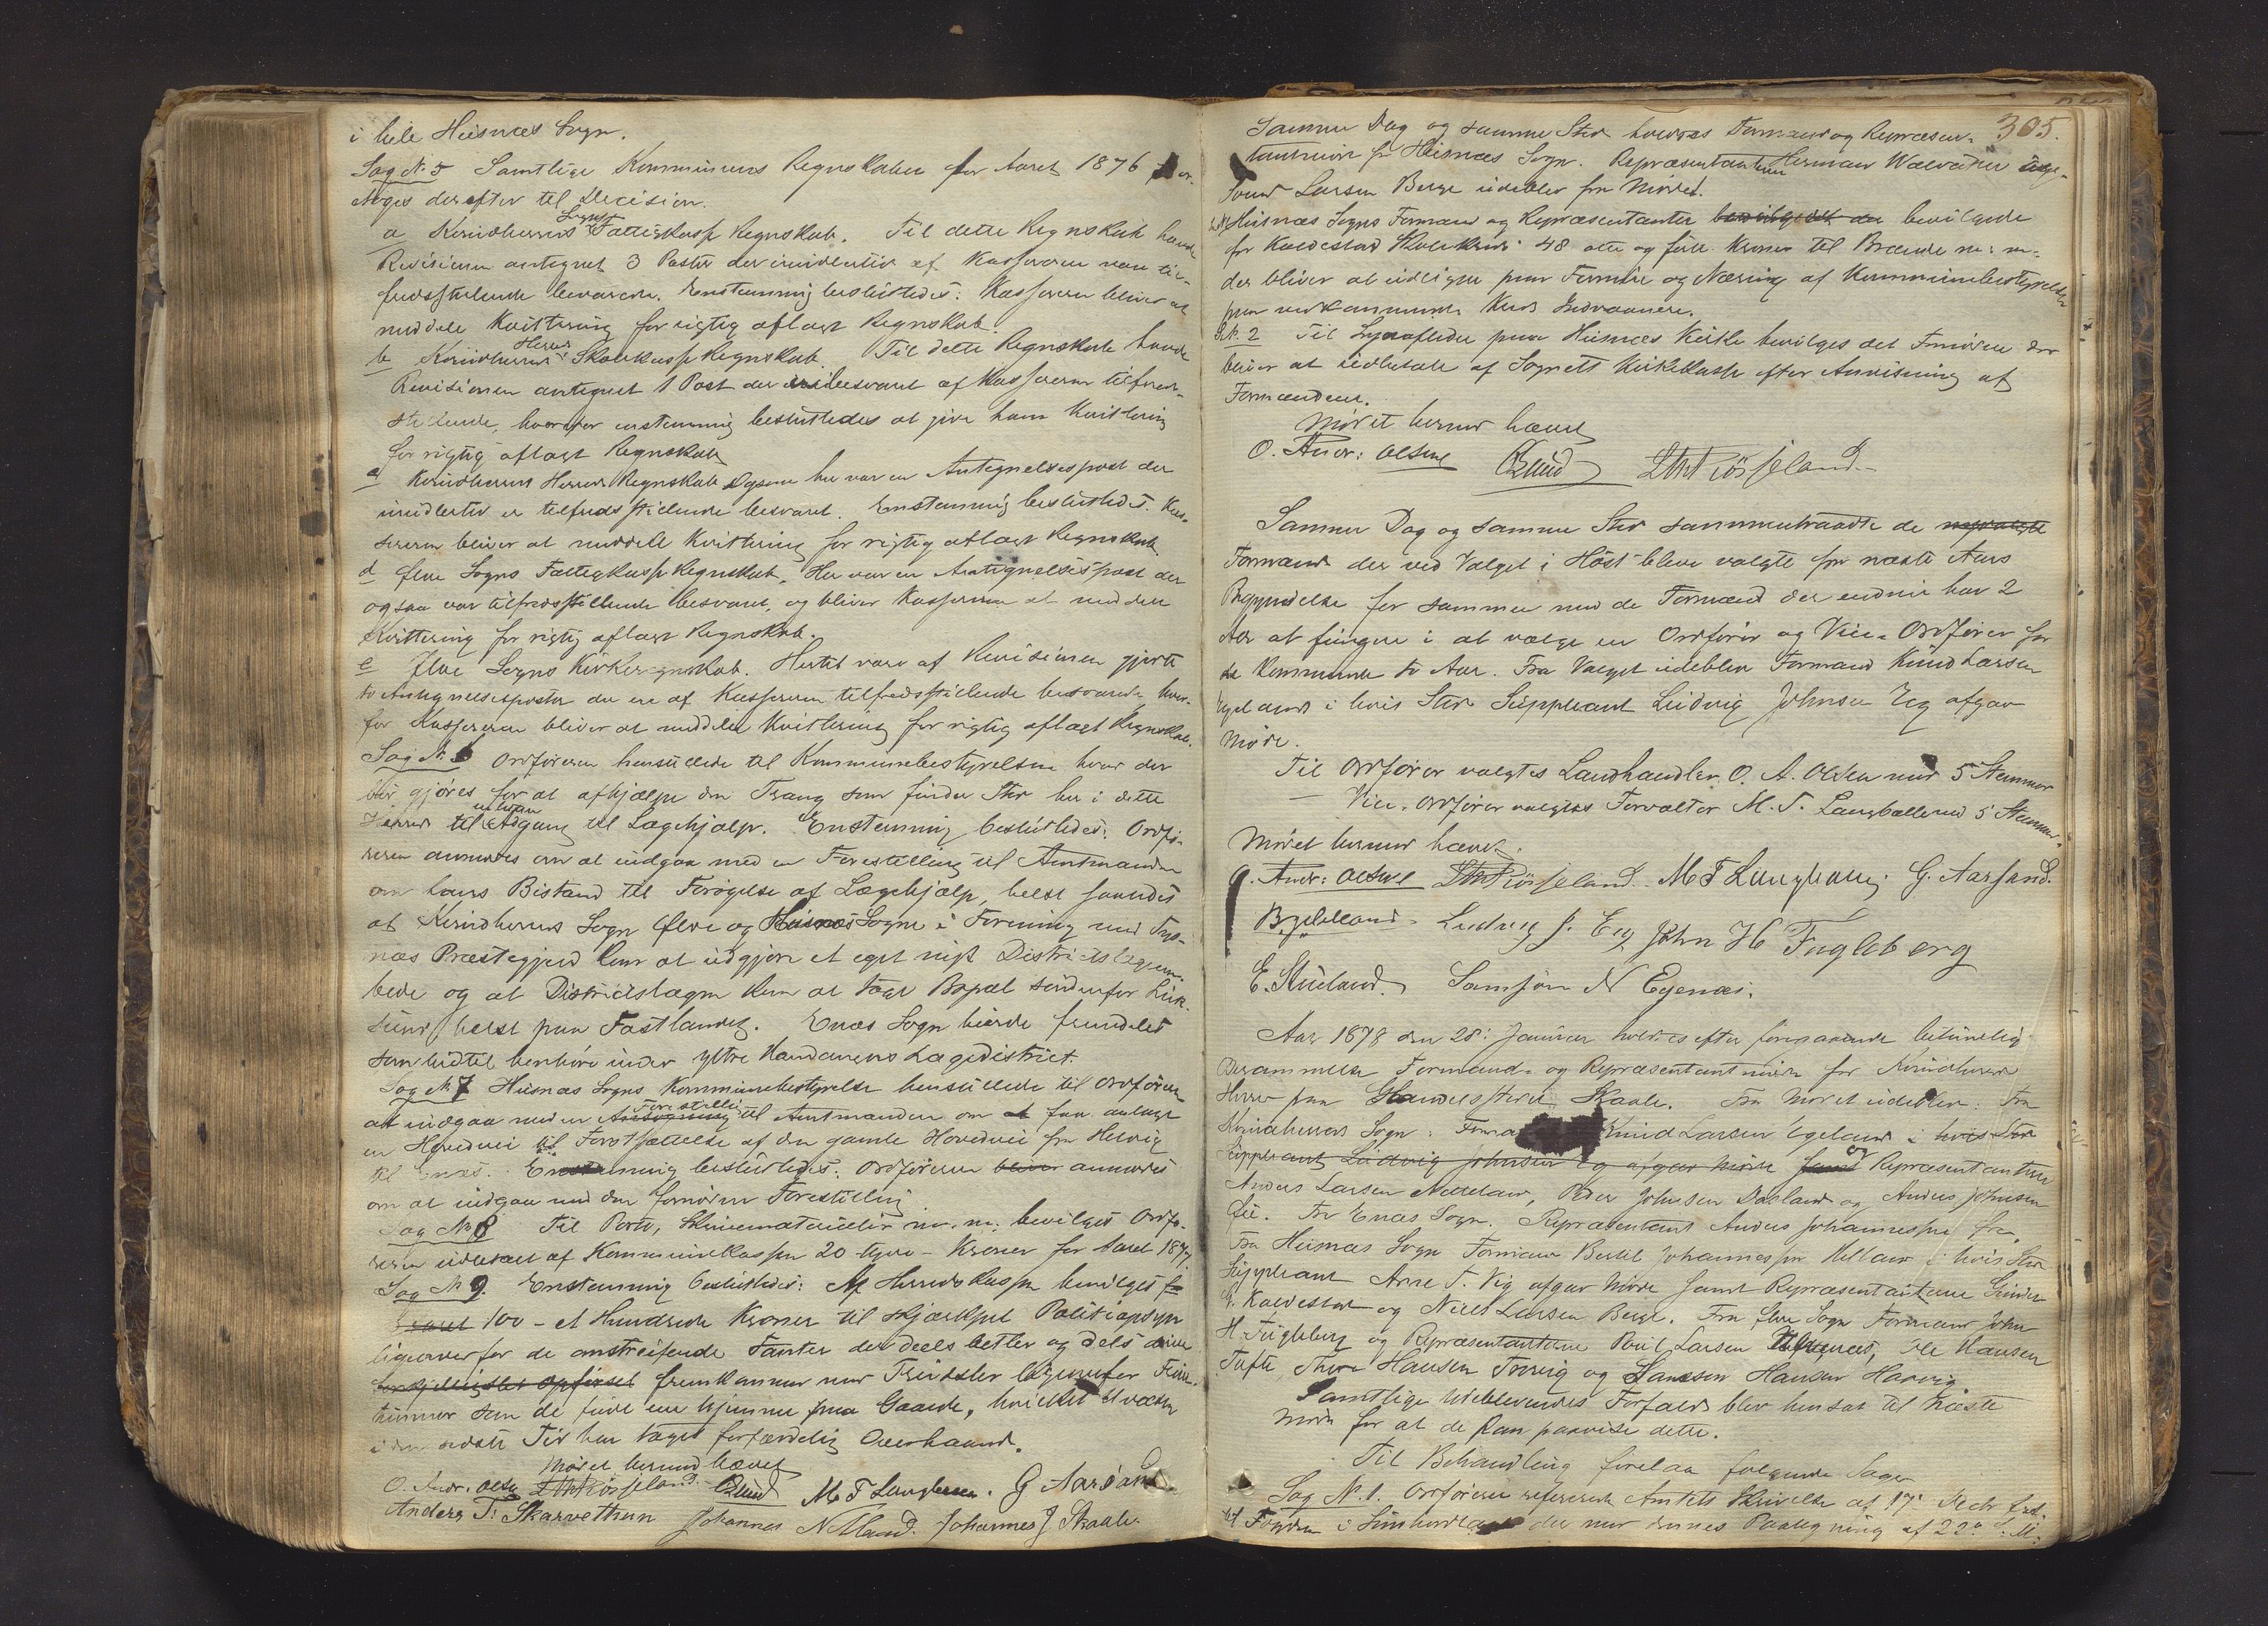 i hele Huusnæs Sogn.
Sag N. 5 Samtlige Kommunens Regnskaber for Aaret 1876 fore-
toges derefter til Decision.
a Kvindherreds Sogns Fattigkasse Regnskab. Til dette Regnskab havde
Revisionen antegnet 3 Poster der imidlertid af Kassereren vare til-
fredsstillende besvarede. Enstemmig besluttedes: Kassereren bliver at
meddele Kvittering for rigtig aflagt Regnskab.
b Kvindherreds Herreds Skolekasse Regnskab. Til dette Regnskab havde
Revisionen antegnet 1 Post der besvaret af Kassereren tilfreds-
stillende, hvorefor enstemmig besluttedes at give ham Kvittering
for rigtig aflagt Regnskab
c Kvindherreds Herreds Regnskab Ogsaa her var en Antegnelsespost der
imidlertid er tilfredsstillende besvaret. Enstemmig besluttedes. Kas-
sereren bliver at meddele Kvittering for rigtig aflagt Regnskab.
d Ølve Sogns Fattigkasse Regnskab. Her var en Antegnelsespost der
ogsaa var tilfredsstillende besvaret, og bliver Kassereren at meddele
Kvittering for rigtig aflagt Regnskab.
e Ølve Sogns Kirkeregnskab. Hertil vare af Revisionen gjorte
to Antegnelsesposter der ere af Kassereren tilfredsstillende besvarede hvor-
for Kassereren bliver at meddele Kvittering for rigtig aflagt Regnskab.
Sag N. 6 Ordføreren henstillede til Kommunebestyrelsen hvad der
bør gjøres for at afhjælpe den Trang som finder Sted her i dette
Herred til Adgang til Lægehjælp. Enstemmig besluttedes: Ordfø-
reren anmodes om at indgaa med en Forestilling til Amtmanden
om hans Bistand til Forøgelse af Lægehjælp, helst saaledes
at Kvindherreds Sogn Ølve og Huusnæs Sogne i Forening med Tys-
næs Præstegjeld kom at udgjøre et eget nyt Districtslægeem-
bede og at Districtslægen kom at tage Bopæl søndenfor Luk-
sund helst paa Fastlandet. Enæs Sogn burde fremdeles
som hidtil henhøre under yttre Hardangers Lægedistrict.
Sag N. 7 Husnæs Sogns Kommunebestyrelse henstillede til Ordføreren
at indgaa med en Ansøgning Forestilling til Amtmanden om at faa anlagt
en Hovedvei til Fortsættelse af den gamle Hovedvei fra Helvig
til Enæs. Enstemmig besluttedes: Ordføreren bliver anmodes
om at indgaa med den fornødne Forestilling
Sag No 8 Til Porto, Skrivematerialier m. m. bevilges Ordfø-
reren udbetalt af Kommunekassen 20 - tyve - Kroner for Aaret 1877.
Sag N. 9. Enstemmig besluttedes: Af Herredskassen bevilges for
Aaret 100 - et Hundrede Kroner til skjærpet Politiopsyn
ligeoverfor de omstreifende Fanter der deels betler og dels
fremkommer med Trudsler ligeoverfor Fruen-
timmer som de finde ene hjemme paa Gaarde, hvilket Uvæsen
i den sidste Tid har taget forfærdelig Overhaand.
Mødet hermed hævet
O. Andr. Olsen M. T. Langballe. G Aarsand
Anders T. Skarvethun Johannes N Uland. Johannes J Skaale.
305.
Samme Dag og samme Sted holdtes Formænd og Repræsen-
tantmøde for Huusnæs Sogn. Repræsentanterne Herman Wælvatne
Larsen Berge udeblev fra Mødet.
Huusnæs Sogns Formænd og Repræsentanter bevilgede
for Kaldestad Skolekreds 48 otte og førti Kroner til Brænde m: m:
der bliver at udligne paa Formue og Næring af Kommunebestyrelsen
paa vedkommende Kreds Indvaanere.
S.N. 2 Til Lynafleder paa Huusnæs Kirke bevilges det Fornødne der
bliver at udbetale af Sognets Kirkekasse efter Anvisning af
Formændene.
Mødet hermed hævet
O. Andr: Olsen
Samme Dag og samme Sted sammentraadte de
Formænd der ved Valget i Høst bleve valgte fra næste Aars
Begyndelse for sammen med de Formænd der endnu har 2
Aar at fungere i at vælge en Ordfører og Vice-Ordfører for
de kommende to Aar. Fra Valget udeblev Formand Knud Larsen
Egeland i hvis Sted Suppleant Ludvig Johnsen Eeg afgav
Møde.
Til Ordfører valgtes Landhandler O. A. Olsen med 5 Stemmer
— Vice-Ordfører valgtes Forvalter M. T. Langballe med 5 Stemmer.
Mødet hermed hævet.
O. Andr: Olsen M T Langballe G. Aarsand.
B. Helland Ludvig J. Eeg John H Fugleberg
E. Skuland Samson N Egenæs.
Aar 1878 den 28: Januar holdtes efter foregaaende betimelig
Berammelse Formands- og Repræsentantmøde for Kvindherreds
Herred paa Handelsstedet Skaale. Fra Mødet udeblev: Fra
Kvindherreds Sogn: Forma Knud Larsen Egeland i hvis Sted
Suppleant Ludvig Johnsen Eg afgav Møde samt og Repræsentanterne
Anders Larsen Nedreland, Peder Johnsen Dosland og Anders Johnsen
Øie. Fra Enæs Sogn. Repræsentant Anders Johannessen
Fra Huusnæs Sogn Formand Bertel Johannessen Helland i hvis Sted
Suppleant Arne T. Vig afgav Møde samt Repræsentanterne
G. Kaldestad og Niels Larsen Berge. Fra Ølve Sogn Formand John
H. Fugleberg og Repræsentanterne Poul Larsen, Ole Hansen
Tufte, Hansen Trovig og Samson Hansen Haavig
Samtlige Udeblevendes Forfald blev hensat til næste
Møde for at de kan paavise dette.
Til Behandling forelaa følgende Sager
Sag N. 1. Ordføreren refererede Amtets Skrivelse af 17: Decbr
Fogden i Sundhordland der med dennes Paategning af 22: M: